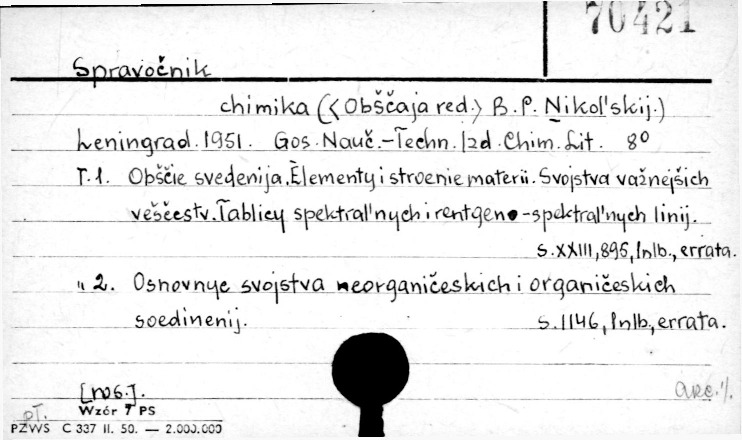 70421
Spravočnik
chimika (<Obščaja red.> B.P. Nikol'skij.)
Leningrad. 1951. Gos. Nauč.-Techn. Izd. Chim. Lit. 8º
T.1. Obščie svedenija. Èlementy i stroenie materii. Svojstva važnejšich
veščestv. Tablicy spektral'nych i rentgeno-spektral'nych linij.
s. XXIII, 895, 1nlb., errata.
" 2. Osnovnye svojstva neorganičeskich i organičeskich
soedinenij. s. 1146, 1nlb., errata.
[ros.].
Wzór 7 PS
PZWS C 337 II. 50. — 2.000.000